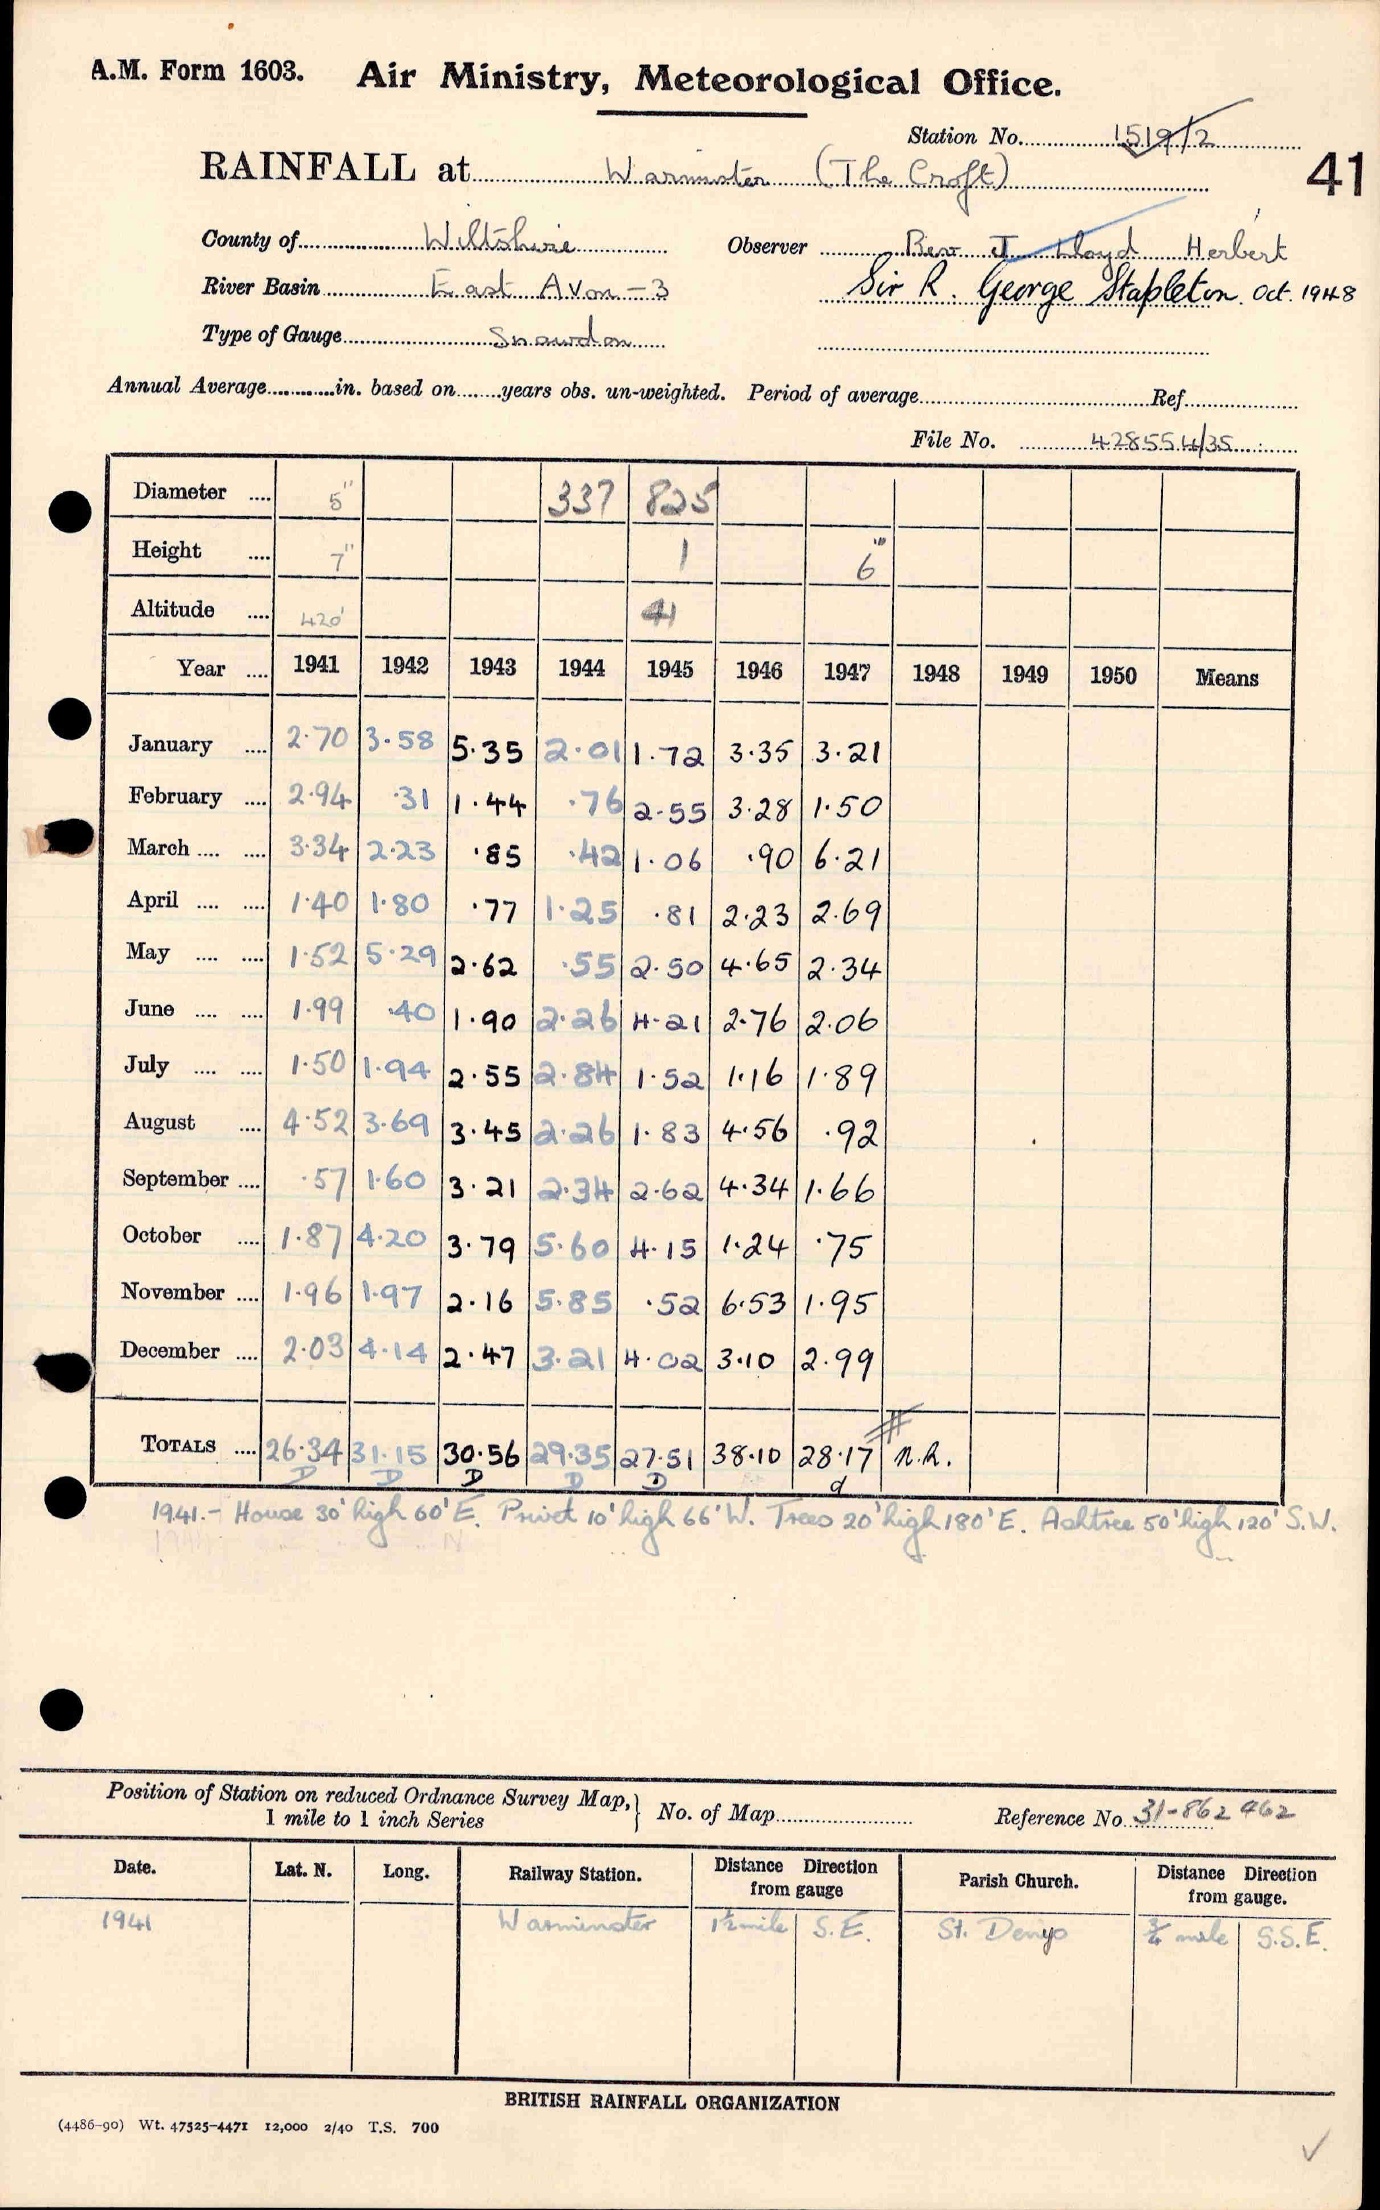 A.M. Form 1603. Air Ministry, Meteorological Office.
Station No. 1519/2
RAINFALL at Warminster (The Croft)
41
County of Wiltshire Observer Rev J Lloyd Herbert
River Basin East Avon - 3 Sir R. George Stapleton Oct. 1948
Type of Gauge Snowdon
Annual Average............in. based on........years obs. un-weighted. Period of average............Ref............
File No. 428554/35
Diameter .... 5" 337 825
Height .... 7" 1 6"
Altitude .... 420' 41
Year .... 1941 1942 1943 1944 1945 1946 1947 1948 1949 1950 Means
January .... 2.70 3.58 5.35 2.01 1.72 3.35 3.21
February .... 2.94 .31 1.44 .76 2.55 3.28 1.50
March .... .... 3.34 2.23 .85 .42 1.06 .90 6.21
April .... .... 1.40 1.80 .77 1.25 .81 2.23 2.69
May .... .... 1.52 5.29 2.62 .55 2.50 4.65 2.34
June .... .... 1.99 .40 1.90 2.26 4.21 2.76 2.06
July .... .... 1.50 1.94 2.55 2.84 1.52 1.16 1.89
August .... 4.52 3.69 3.45 2.26 1.83 4.56 .92
September .... .57 1.60 3.21 2.34 2.62 4.34 1.66
October .... 1.87 4.20 3.79 5.60 4.15 1.24 .75
November .... 1.96 1.97 2.16 5.85 .52 6.53 1.95
December .... 2.03 4.14 2.47 3.21 4.02 3.10 2.99
TOTALS .... 26.34 31.15 30.56 29.35 27.51 38.10 28.17 N.R.
D D D D D d
1941.- House 30' high 60' E. Privet 10' high 66' W. Trees 20' high 180' E. Ashtree 50' high 120' S.W.
Position of Station on reduced Ordnance Survey Map,} No. of Map............ Reference No. 31-862 462
1 mile to 1 inch Series
Date. Lat. N. Long. Railway Station. Distance Direction from gauge Parish Church. Distance Direction from gauge.
1941 Warminster 1½ mile S.E. St. Denys ¾ mile S.S.E.
BRITISH RAINFALL ORGANIZATION
(4486-90) Wt. 47525-4471 12,000 2/40 T.S. 700